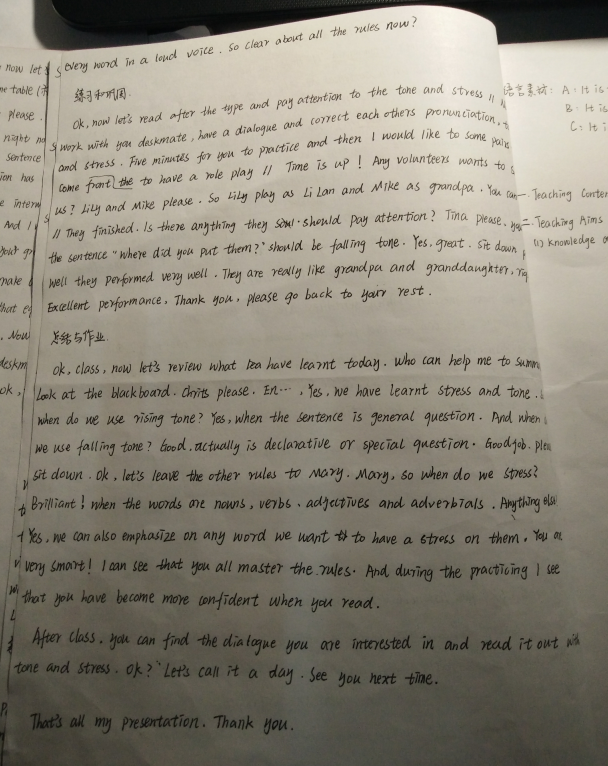 every word in a loud voice. So clear about all the rules now?
练习和巩固.
Ok, now let's read after the type and pay attention to the tone and stress //
work with you deskmate, have a dialogue and correct each others pronunciation,
and stress. Five minutes for you to practice and then I would like to some pairs
come front the to have a role play // Time is up! Any volunteers wants to
us? Lily and Mike please. So Lily play as Li Lan and Mike as grandpa. You can
// They finished. Is there anything they should pay attention? Tina please.
the sentence "where did you put them?" should be falling tone. Yes, great. Sit down
well they performed very well. They are really like grandpa and granddaughter,
Excellent performance, Thank you, please go back to your rest.
总结与作业.
Ok, class, now let's review what have learnt today. Who can help me to summ
Look at the blackboard. Chris please. En..., Yes, we have learnt stress and tone.
when do we use rising tone? Yes, when the sentence is general question. And when
we use falling tone? Good. actually is declarative or special question. Good job. plea
sit down. Ok, let's leave the other rules to Mary. Mary, so when do we stress?
Brilliant! when the words are nouns, verbs, adjectives and adverbials. Anything else
Yes, we can also emphasize on any word we want to have a stress on them. You are
very smart! I can see that you all master the rules. And during the practicing I see
that you have become more confident when you read.
After class, you can find the dialogue you are interested in and read it out with
tone and stress. Ok? Let's call it a day. See you next time.
That's all my presentation. Thank you.
now let
please.
night
sentence
And I
make
that
Now
deskm
ok,
语言素材: A: It is
B: It is
C: It i
一. Teaching Conten
二. Teaching Aims
(1) Knowledge